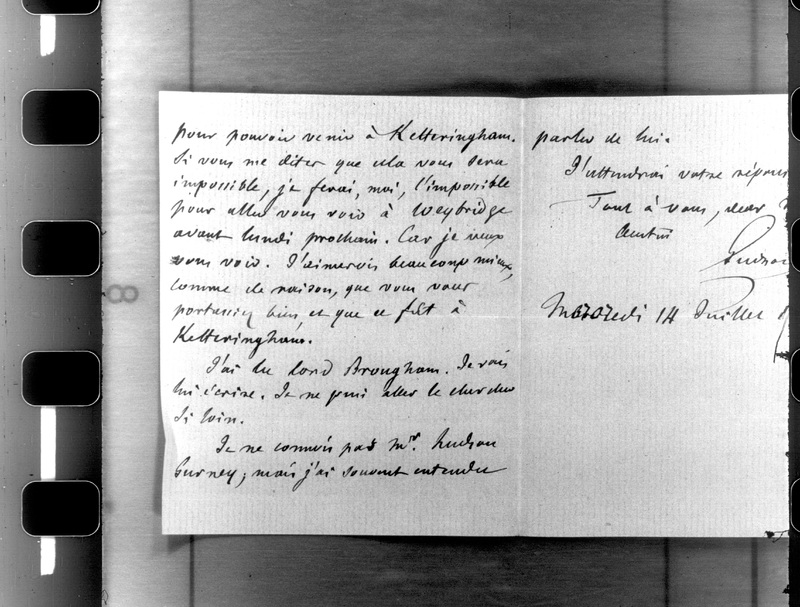 pour pouvoir venir à Ketteringham.
Si vous me dites que cela vous sera
impossible, je ferai, moi, l'impossible
pour aller vous voir à Weybridge
avant lundi prochain. Car je veux
vous voir. J'aimerois beaucoup mieux,
comme de raison, que vous vous
portassiez bien et que ce fût à
Ketteringham.
J'ai lu Lord Brougham. Je vais
lui écrire. Je ne puis aller le chercher
si loin.
Je ne connois pas Mr. Hudson
Gurney; mais j'ai souvent entendu
parler de lui.
J'attendrai votre répons
Tout à vous, dear
Austin
Mercredi 14 Juillet
8